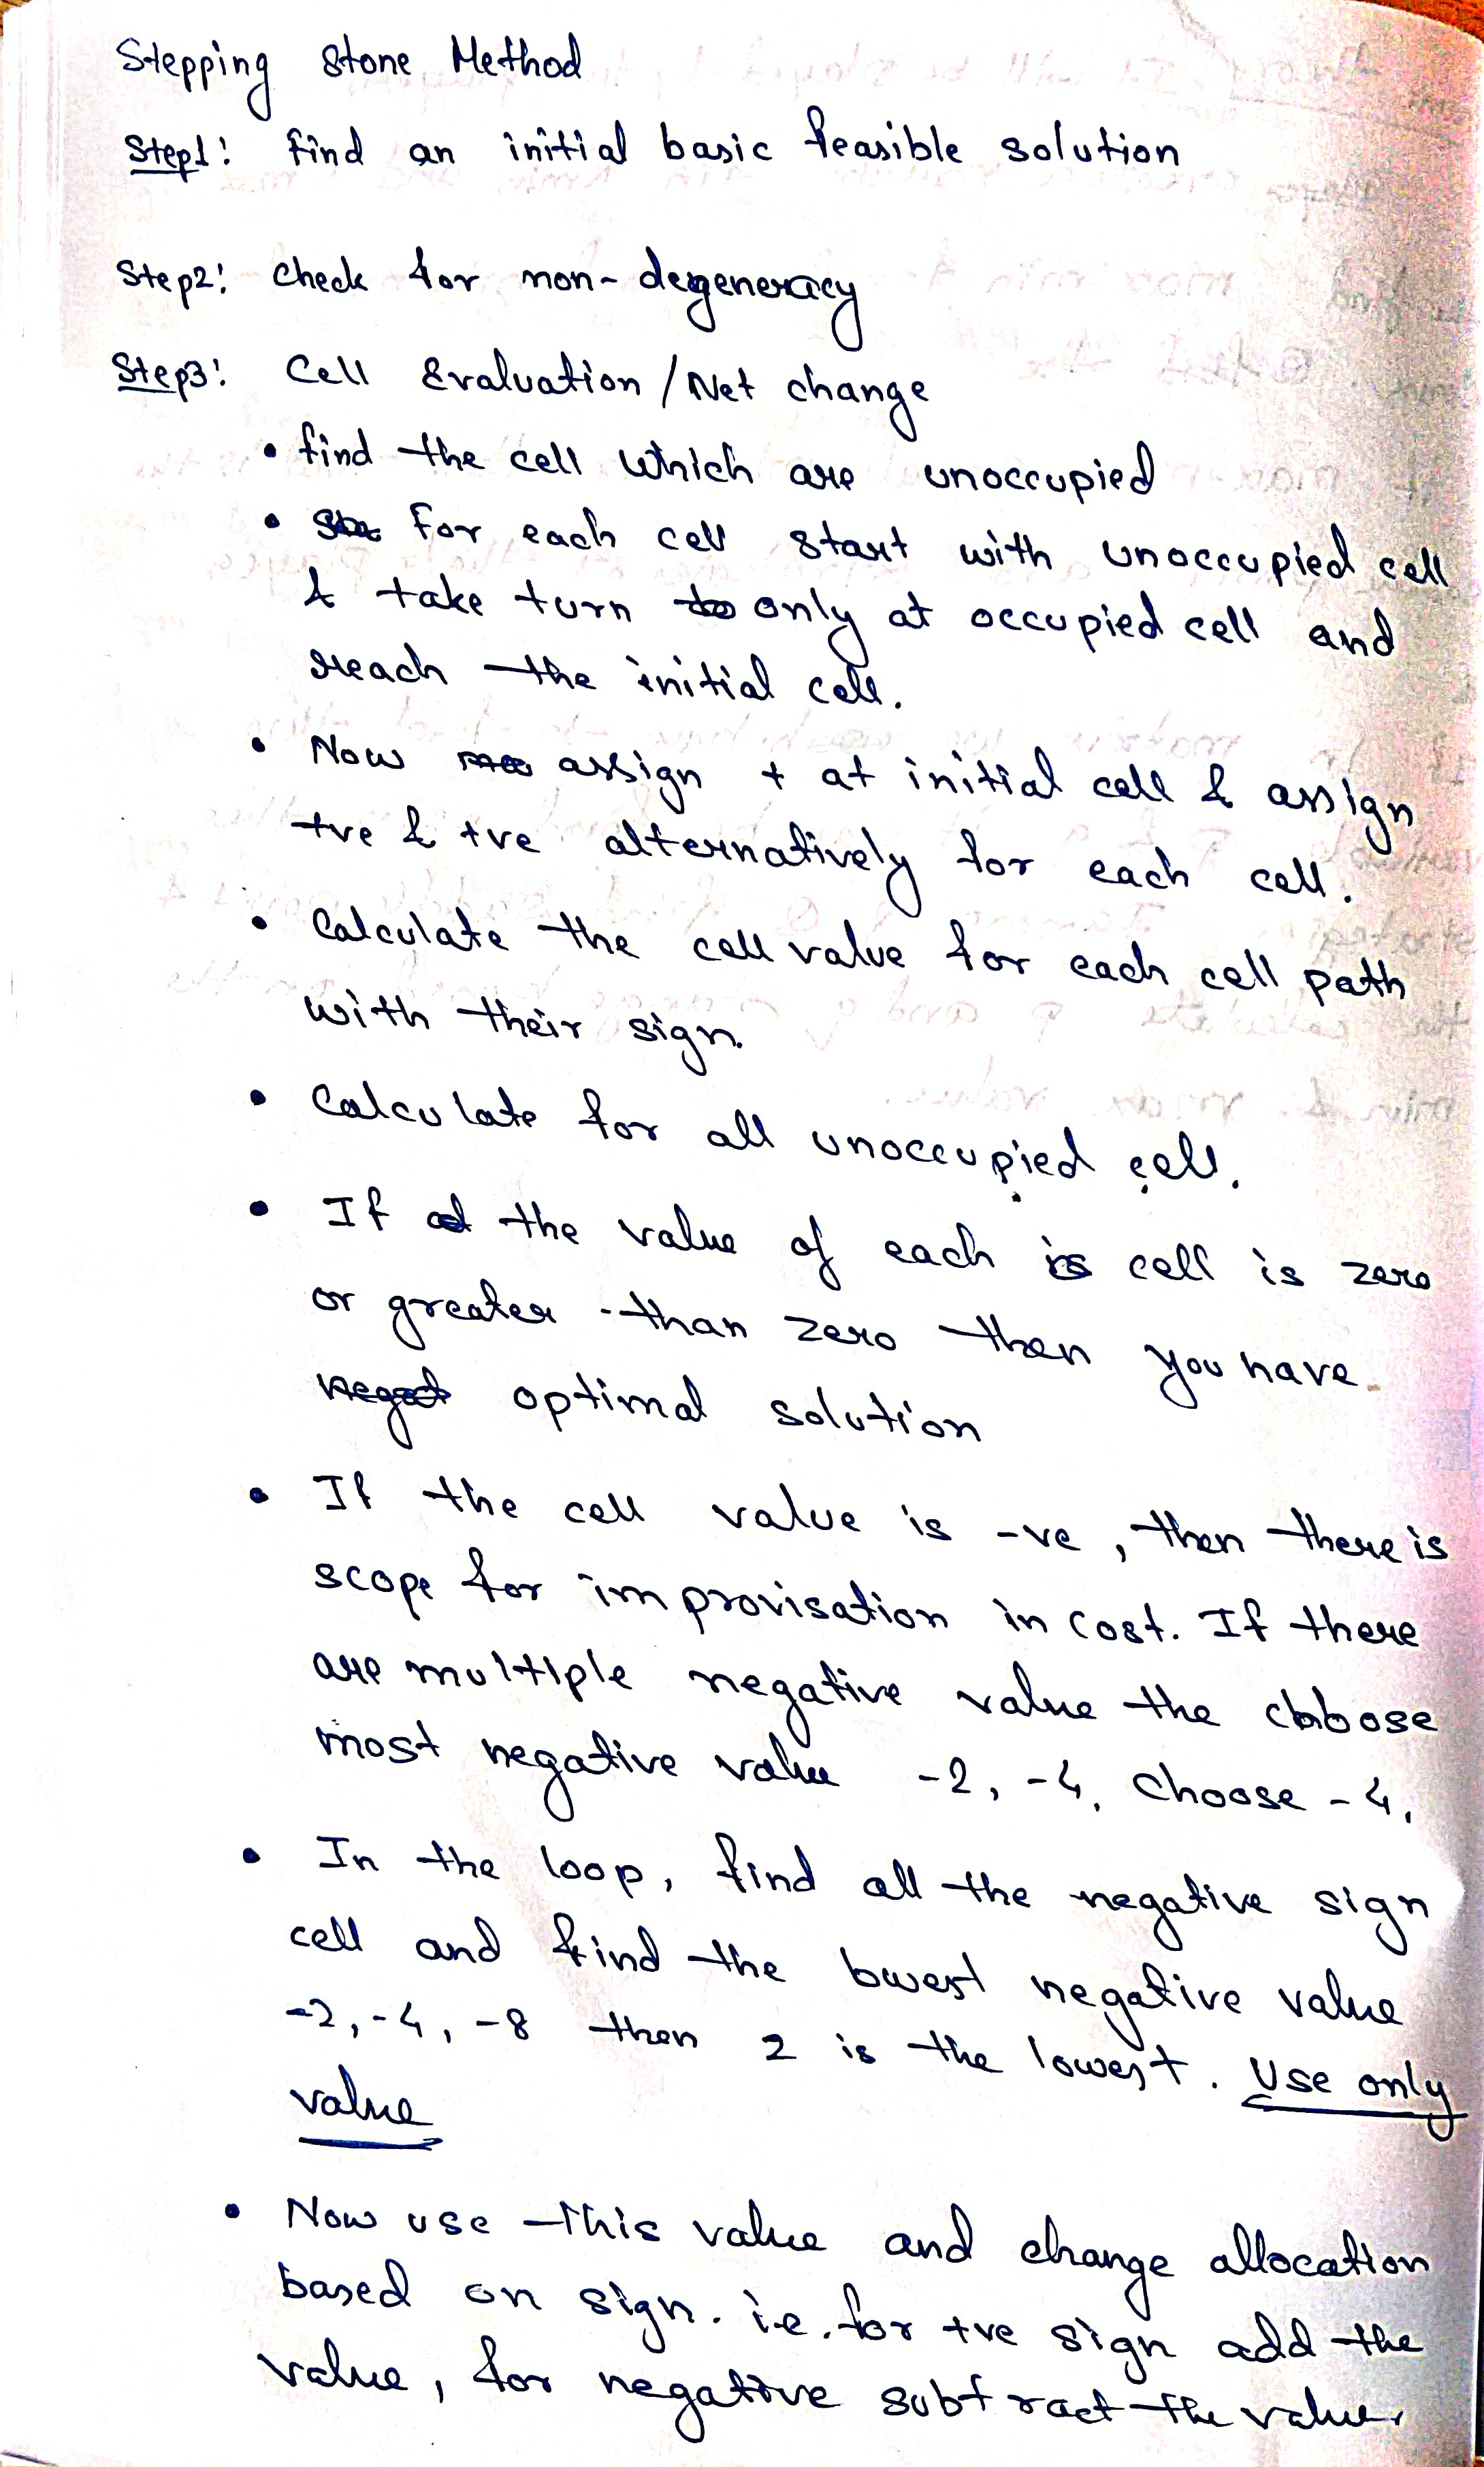 Stepping Stone Method
Step1: find an initial basic feasible solution
Step2: Check for non-degeneracy
Step3: Cell Evaluation / Net change
• find the cell which are unoccupied
• for each cell start with unoccupied cell
& take turn only at occupied cell and
reach the initial cell.
• Now assign + at initial cell & assign
+ve & +ve alternatively for each cell.
• Calculate the cell value for each cell path
with their sign.
• Calculate for all unoccupied cell.
• If the value of each cell is zero
or greater than zero then you have
optimal solution
• If the cell value is -ve, then there is
scope for improvisation in cost. If there
are multiple negative value the choose
most negative value -2, -4, Choose -4,
• In the loop, find all the negative sign
cell and find the lowest negative value
-2, -4, -8 then 2 is the lowest. Use only
value
• Now use this value and change allocation
based on sign. i.e. for +ve sign add the
value, for negative subtract the value,